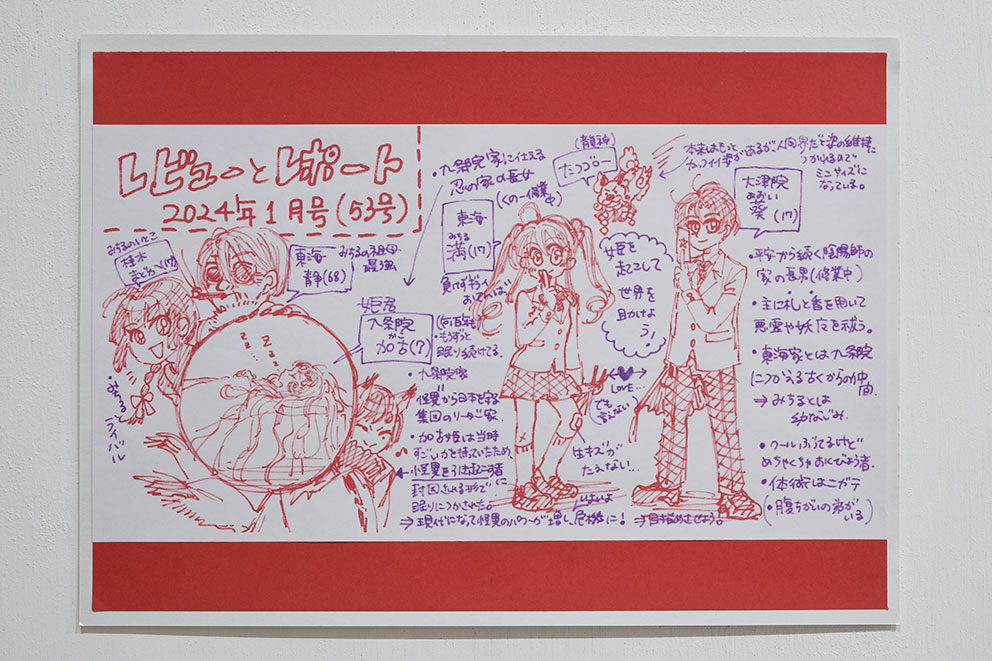 レビューとレポート
2024年1月号(53号)
みちるのいとこ
桂木
まどか(17)
・みちるとライバル
東海
静(68)
みちるの祖母
最強
・九条院家に仕える
忍の家の長女
(くの一修業中)
東海
みちる
満(17)
負けずギライ
おてんば
姫君
九条院
かこ
加古(?)
(何百年も)
・もうずっと
眠り続けてる。
・九条院家
怪異から日本を守る
集団のリーダー家
・加古姫は当時
すごい力を持っていたため、
小怪異を引き起こす者に
封印される形で
眠りにつかされた。
⇒現代になって怪異のパワーが増し、いよいよ危機に!
⇒目醒めさせよう。
(龍神)
たつゴロー
本来はもっと
カッコイイ姿があるが人間界だと姿の維持に
つかれるので
ミニサイズに
なっている。
姫を
起こして
世界を
助けよう!
LOVE…
(でも
言えない)
生キズが
たえない…
大津院
あおい
葵(17)
・平安から続く陰陽師の
家の長男(修業中)
・主に札と香を用いて
悪霊や妖怪を祓う。
・東海家とは九条院
につかえる古くからの仲間
⇒みちるとは
幼なじみ。
・クールぶってるけど
めちゃくちゃおくびょう者。
・体術はニガテ
(・腹ちがいの弟が
いる)